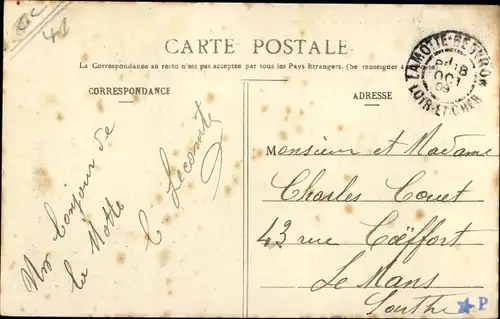 41
CARTE POSTALE
La Correspondance au recto n'est pas acceptée par tous les Pays Étrangers. (Se renseigner à
CORRESPONDANCE
ADRESSE
LAMOTTE-BEUVRON
8
OCT
09
LOIR-ET-CHER
Un bonjour de
la Motte
C. Lecomte
Monsieur et Madame
Charles Couet
43 rue Coëffort
Le Mans
Sarthe
P